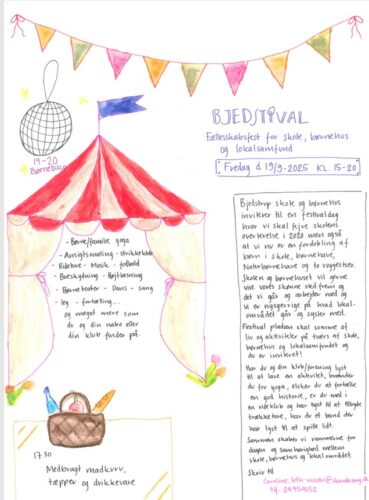 BJEDSTIVAL
Fællesskabsfest for skole, børnehus
og lokalsamfund
Fredag d. 19/9-2025 KL. 15-20
19-20
BørneDisco
- Børne/familie yoga
- Ansigtsmaling - strikkeklub
- Rideture - Musik - fodbold
- Bueskydning - Højtlæsning
- Børneteater - Dans - sang
- leg - fortælling...
og meget mere som
du og din nabo eller
din klub finder på.
Bjedstrup skole og børnehus
inviterer til en festivaldag
hvor vi skal fejre skolens
overlevelse i 2020 men også
at vi nu er en fordobling af
børn i skole, børnehave,
Naturbørnehave og to vuggestuer.
Skolen og børnehuset vil gerne
vise vores skønne sted frem og
det vi går og arbejder med og
vi er nysgerrige på hvad lokal-
området går og sysler med.
Festival pladsen skal summe af
liv og aktiviteter på tværs af skole,
børnehus og lokalsamfundet og
du er inviteret!
Har du og din klub/forening lyst
til at lave en aktivitet, brænder
du for yoga, elsker du at fortælle
en god historie, er du med i
en rideklub og har lyst til at tilbyde
trækketure, har du et band der
har lyst til at spille lidt.
Sammen skaber vi rammerne for
dagen og samhørighed mellem
skole, børnehus og lokalområdet.
Skriv til
tlf. 29759152
17.30
Medbragt madkurv,
tæpper og drikkevare